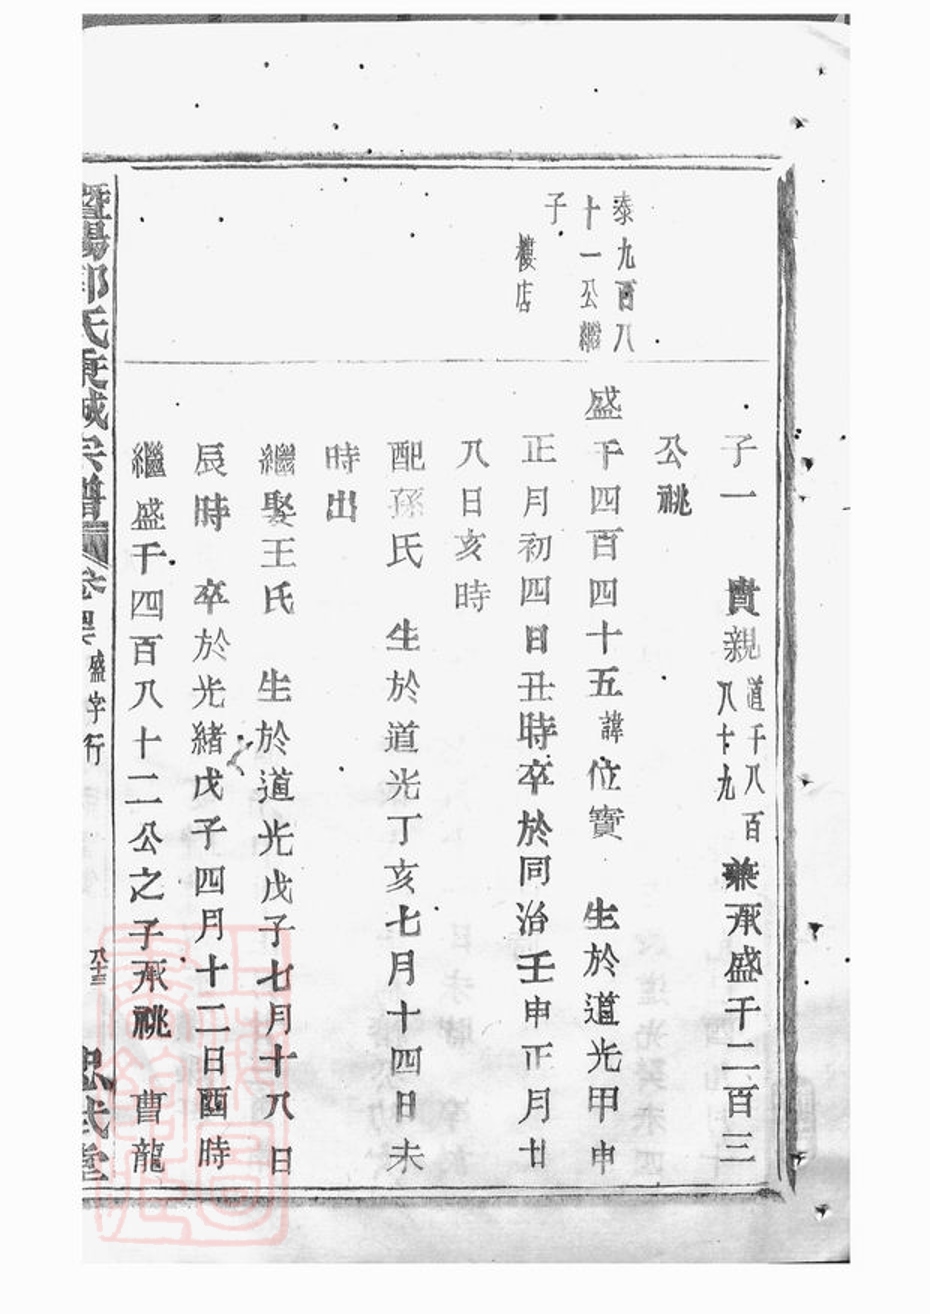 泰九百八
十一公繼
子
樓店
子一 貴親道千八百八十九兼承盛千二百三
公祧
盛千四百四十五諱位寶 生於道光甲申
正月初四日丑時卒於同治壬申正月廿
八日亥時
配孫氏 生於道光丁亥七月十四日未
時出
繼娶王氏 生於道光戊子七月十八日
辰時 卒於光緒戊子四月十二日酉時
繼盛千四百八十二公之子承祧 曹龍
暨陽郭氏東城宗譜 盛字行 忠武堂